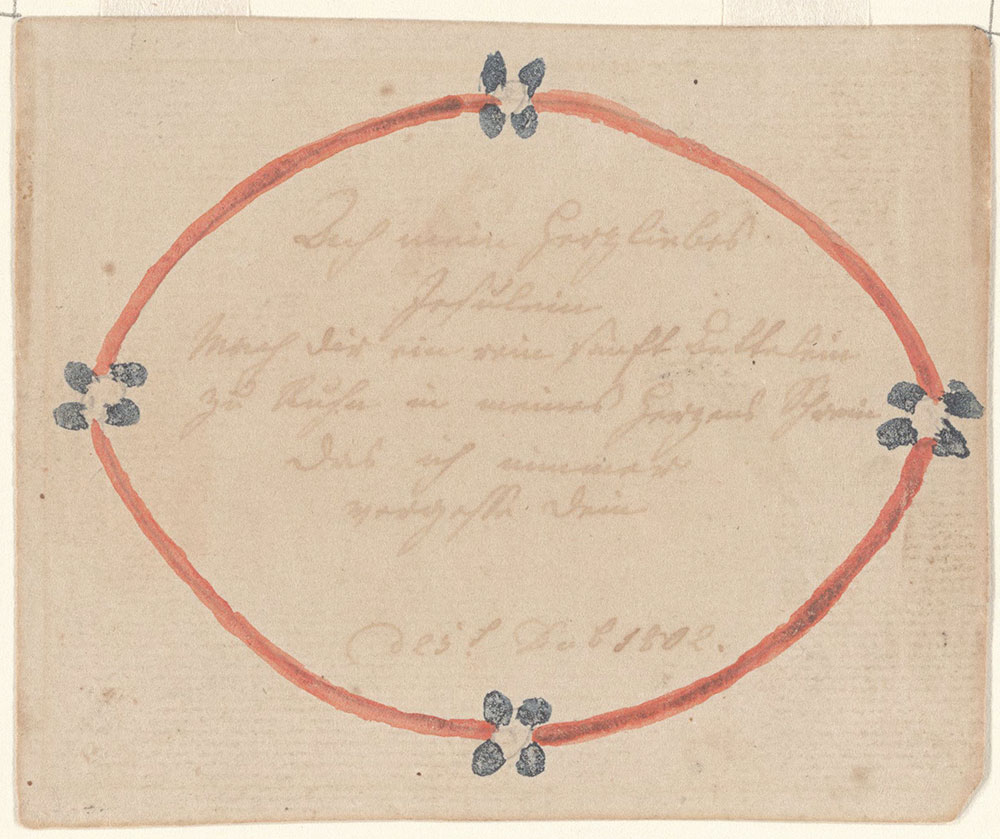 Ach mein Herzliebes
Jesulein
Mach dir ein rein sanft Bettelein
zu Ruhn in meines Herzens Schrein
Das ich nimmer
vergesse dein
1802.